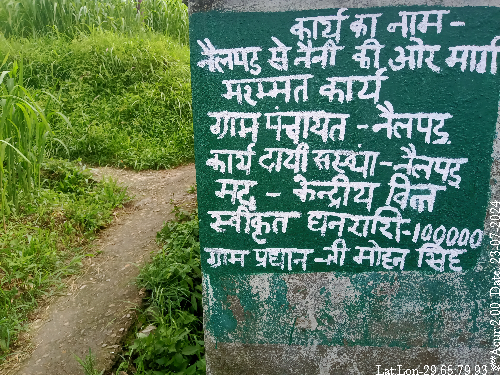 कार्य का नाम-
नैलपड़ से नैनी की ओर मार्ग
मरम्मत कार्य
ग्राम पंचायत - नैलपड़
कार्य दायी संस्था - नैलपड़
मद - केन्द्रीय वित्त
स्वीकृत धनराशि-100000
ग्राम प्रधान-श्री मोहन सिंह
Lat Lon-29.65,79.93